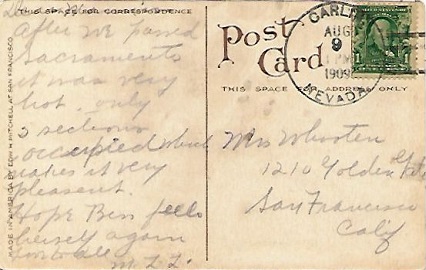 THIS SPACE FOR CORRESPONDENCE
After we passed
Sacramento
it was very
hot only
3 sections
occupied which
makes it very
pleasant.
Hope Ben feels
herself again
Love to all
MADE IN AMERICA BY EDW H MITCHELL AT SAN FRANCISCO
Post
Card
THIS SPACE FOR ADDRESS ONLY
CARLIN
AUG
9
PM
1909
NEVADA
1
Mrs Whooten
1210 Golden Gate
San Francisco
Calif